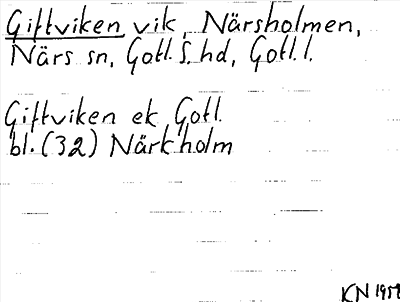 Giftviken vik, Närsholmen,
Närs sn, Gotl. S. hd, Gotl. l.
Giftviken ek Gotl.
bl. (32) Närkholm
KN